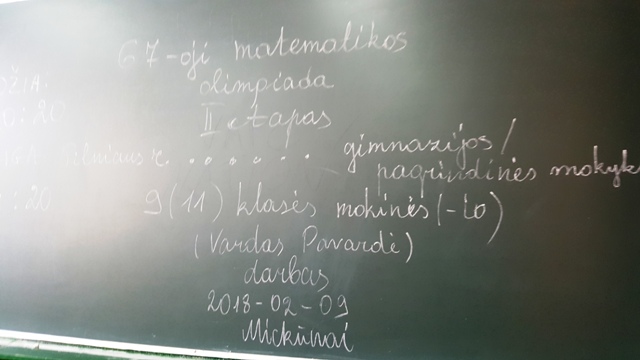 67-oji matematikos
olimpiada
II etapas
Vilniaus r. . . . . . . . gimnazijos/
pagrindinės mokyk
9(11) klasės mokinės(-io)
(Vardas Pavardė)
darbas
2018-02-09
Mickūnai
:20
:20